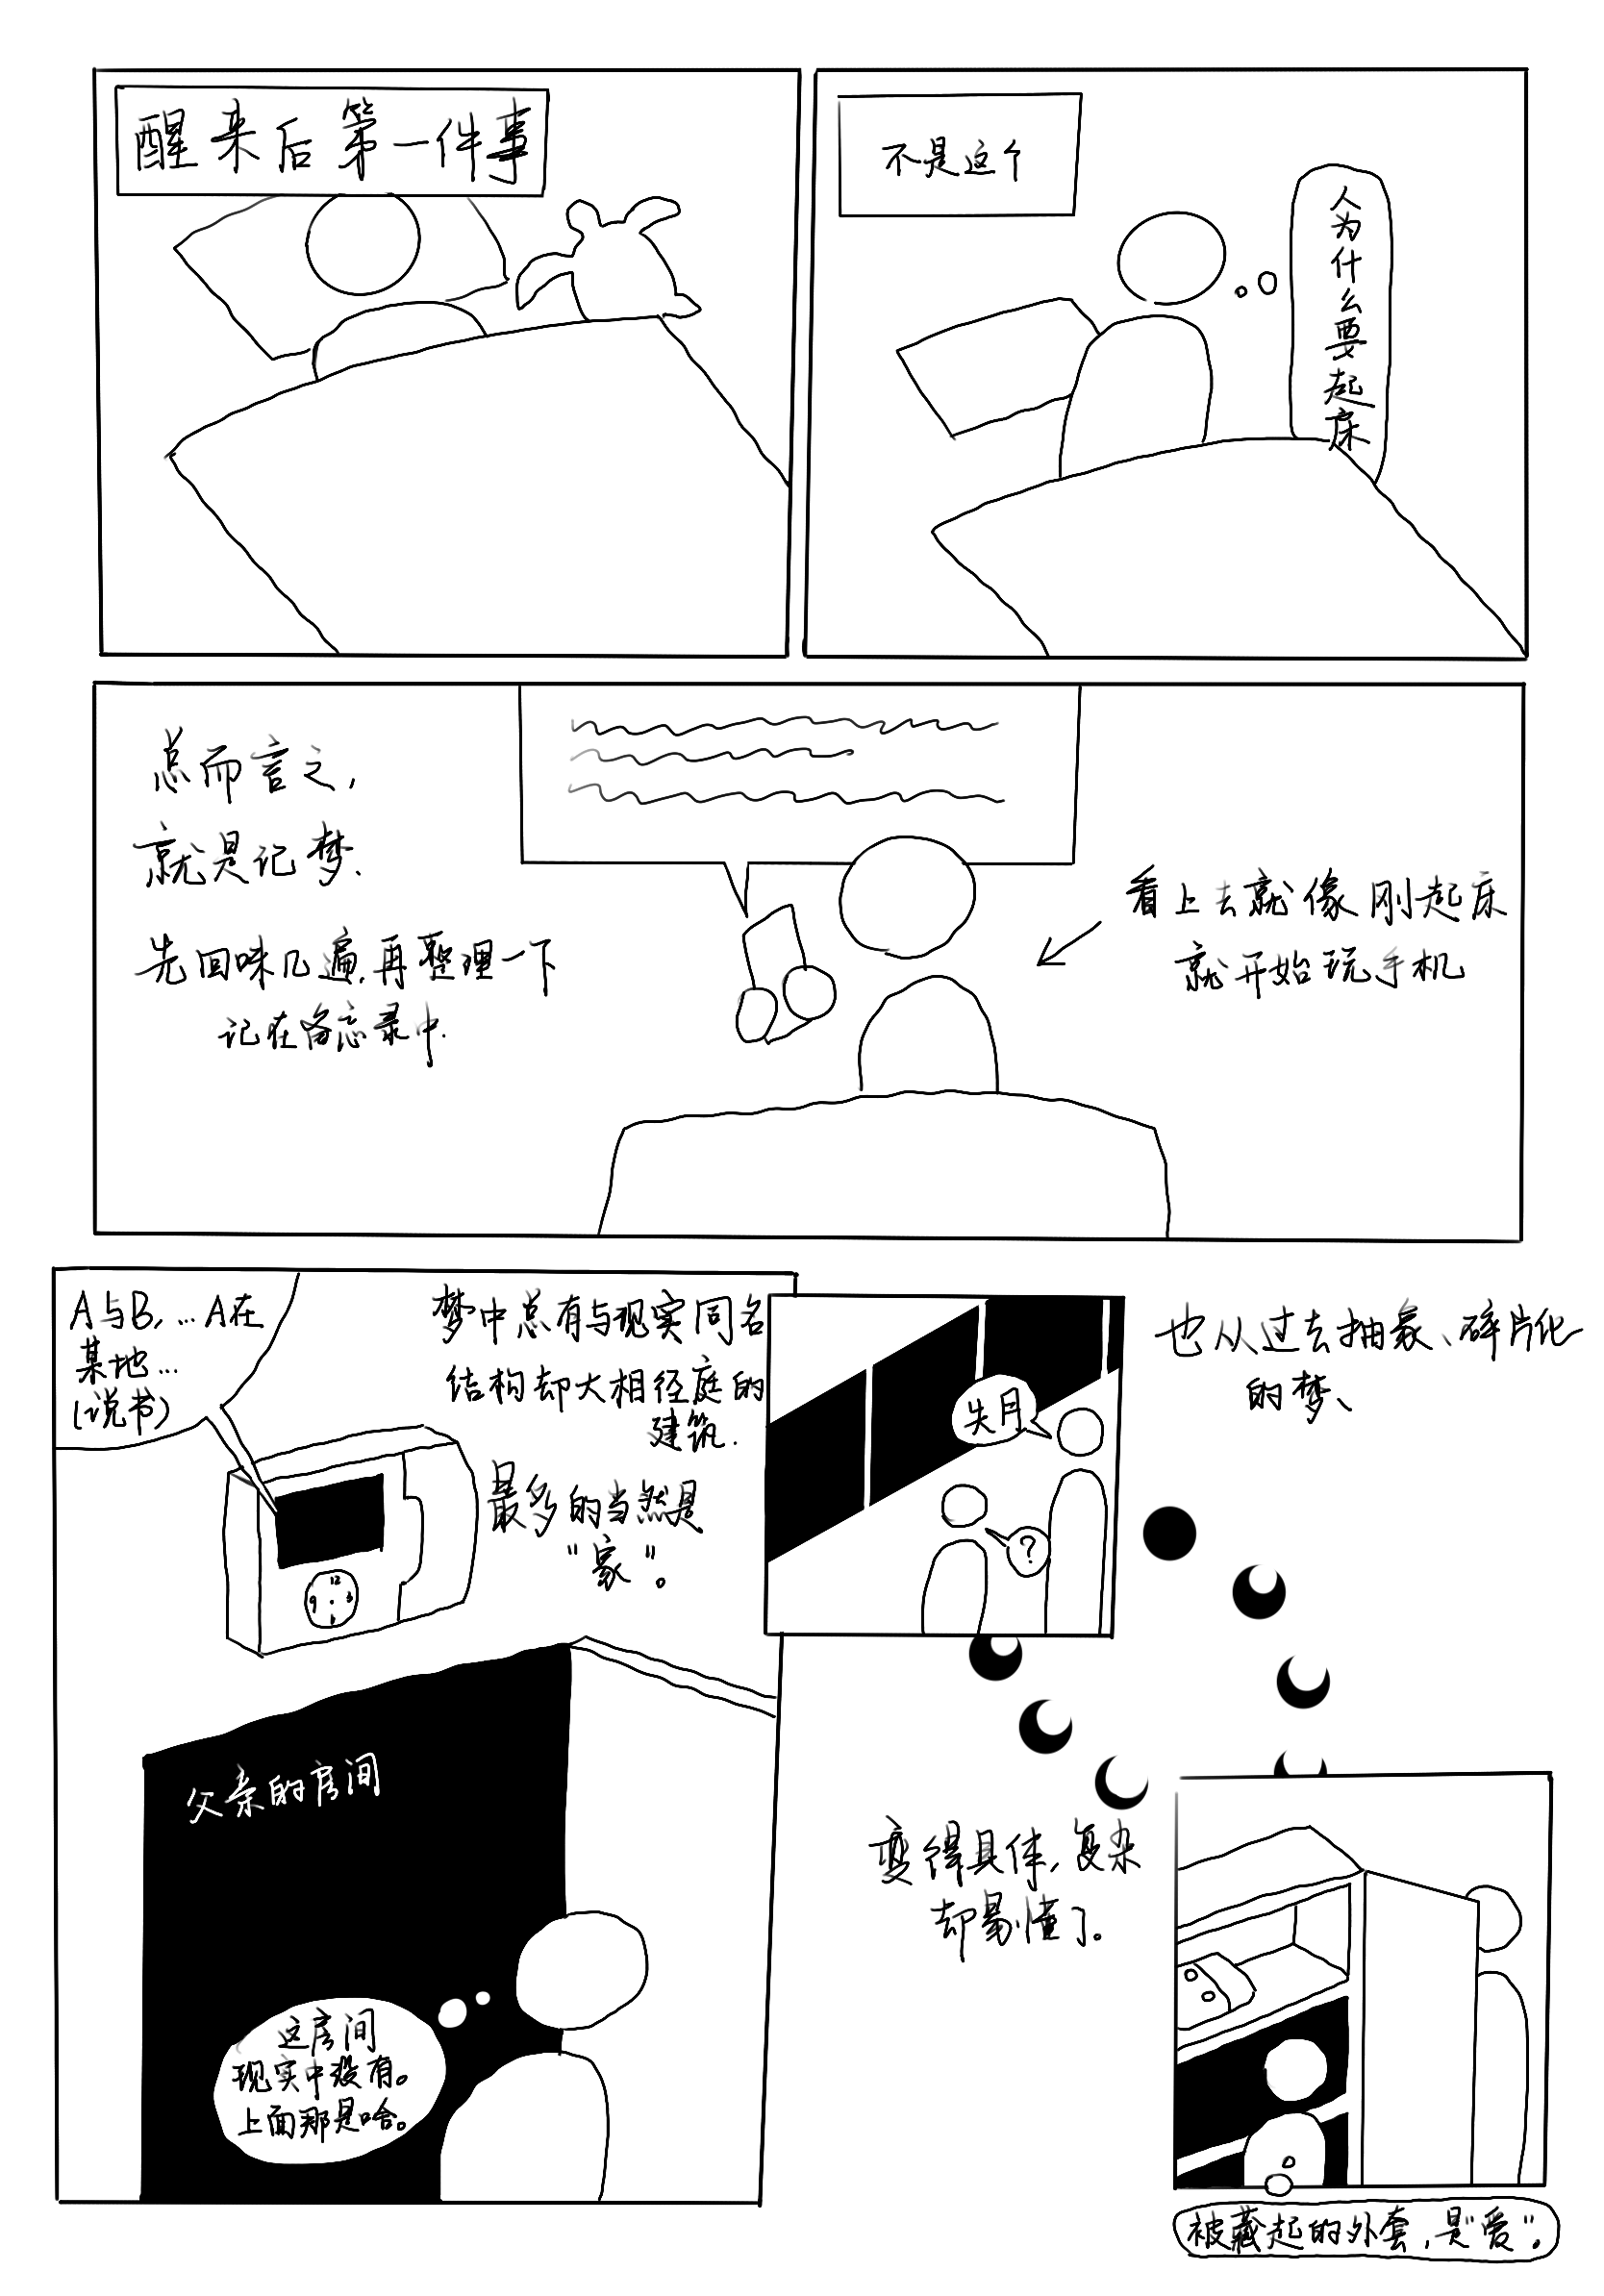 醒来后第一件事
不是这个
人为什么要起床
总而言之,
就是记梦.
先回味几遍,再整理一下
记在备忘录中.
看上去就像刚起床
就开始玩手机
A与B,…A在
某地…
(说书)
梦中总有与现实同名
结构却大相径庭的
建筑.
最多的当然是
“家”。
12
3
6
9
父亲的房间
这房间
现实中没有。
上面那是啥。
失月
?
也从过去抽象、碎片化
的梦、
变得具体,复杂
却易懂了。
被藏起的外套,是“爱”。